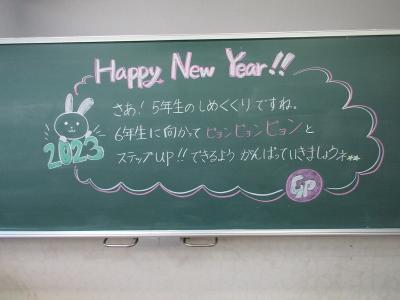 Happy New Year!!
さあ! 5年生のしめくくりですね。
6年生に向かって ピョンピョンピョンと
ステップUP!! できるよう がんばっていきましょうネ**
2023
GP